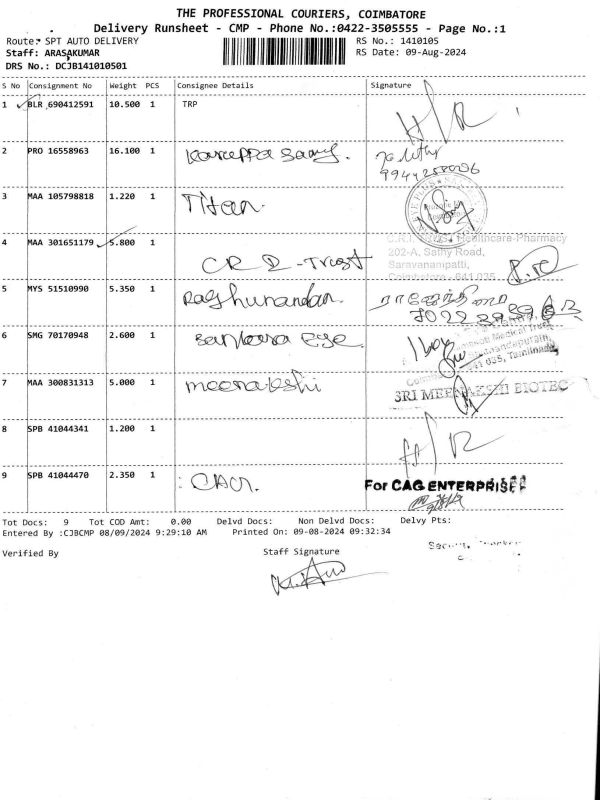 THE PROFESSIONAL COURIERS, COIMBATORE
Delivery Runsheet - CMP - Phone No.:0422-3505555 - Page No.:1
Route: SPT AUTO DELIVERY RS No.: 1410105
Staff: ARASAKUMAR RS Date: 09-Aug-2024
DRS No.: DCJB141010501
S No Consignment No Weight PCS Consignee Details Signature
1 BLR 690412591 10.500 1 TRP
2 PRO 16558963 16.100 1 Karuppa Samy.
3 MAA 105798818 1.220 1 Titan.
4 MAA 301651179 5.800 1 C.R.I. Healthcare-Pharmacy
202-A, Sathy Road,
Saravanampatti,
CRI - Trust Coimbatore - 641 035
5 MYS 51510990 5.350 1 Raghunandan.
6 SMG 70170948 2.600 1 Sankara Eye.
Medical Trust
641 035, Tamilnadu
7 MAA 300831313 5.000 1 meenakshi
SRI MEENAKSHI BIOTEC
8 SPB 41044341 1.200 1
9 SPB 41044470 2.350 1 : CAG. For CAG ENTERPRISES
Tot Docs: 9 Tot COD Amt: 0.00 Delvd Docs: Non Delvd Docs: Delvy Pts:
Entered By :CJBCMP 08/09/2024 9:29:10 AM Printed On: 09-08-2024 09:32:34
Verified By Staff Signature